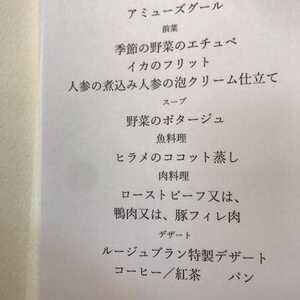 アミューズグール
前菜
季節の野菜のエチュベ
イカのフリット
人参の煮込み人参の泡クリーム仕立て
スープ
野菜のポタージュ
魚料理
ヒラメのココット蒸し
肉料理
ローストビーフ又は、
鴨肉又は、豚フィレ肉
デザート
ルージュブラン特製デザート
コーヒー／紅茶　　パン